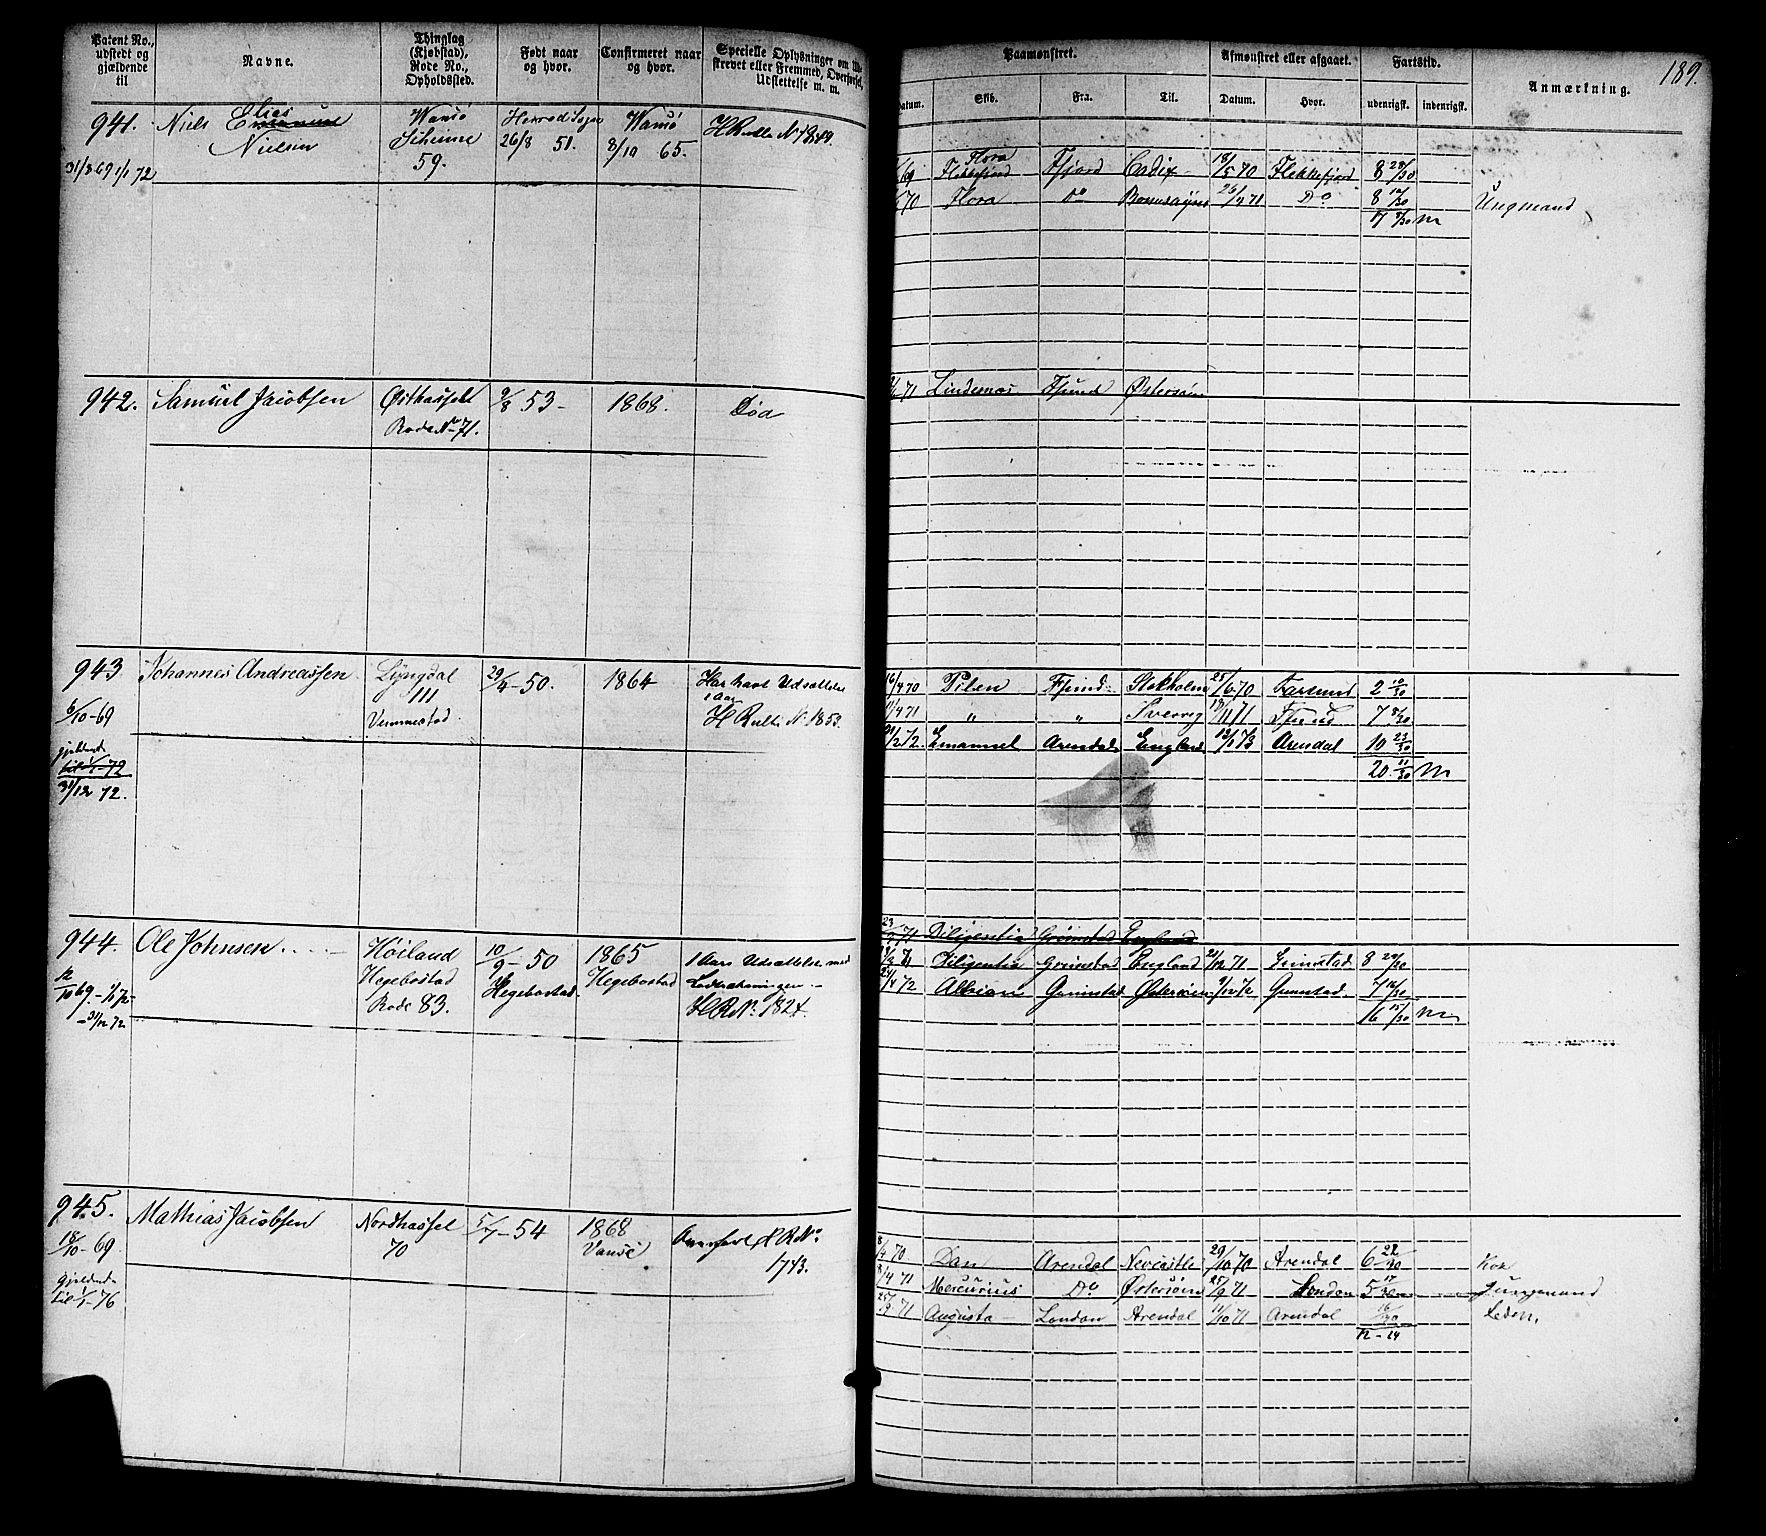 Patent No., udstedt og gjældende til
Navne.
Thinglag (Kjøbstad), Rode No., Opholdssted.
Født naar og hvor.
Confirmeret naar og hvor.
Specielle Oplysninger om
strevet eller Fremmed, Overførsel,
Udslettelse m. m.
941.
Niels Elias
Nielsen
Wansø
59.
26/8 51.
Wansø
8/10 65.
H Rulle No 1849.
31/3 69 1/1 72
942.
Samuel Jacobsen
Østhassel
Rode No 71.
9/8 53-
1868.
Døa
943
Johannes Andreassen
Lyngdal
111
Vemmestad
29/4-50.
1864
Har havt Udsættelse
1 Aar
H Rulle No 1853.
6/10-69
gjeldende
til 1/1-72
31/12 72.
944.
Ole Johnsen
Høiland
Hegebostad
Rode 83.
10/9-50
Hegebostad
1865
Hegebostad
1 Aars Udsættelse med
H R No 1824.
12/10 69.-1/1 72-
-31/12 72
945.
Mathias Jacobsen
Nordhassel
70
5/7-54
1868
Vansø
Overført H R No
1743.
18/10-69
Gjeldende
til 1/1-76
189.
Paamønstret.
Afmønstret eller afgaaet.
Fartstid.
Anmærkning.
Datum.
Skib.
Fra.
Til.
Datum.
Hvor.
udenrigsk.
indenrigsk.
Flora
69 Flekkefjord Fjord Cadix 18/5 70 Flekkefjord 8 28/30
70 Flora Do 26/4 71 Do 8 12/30 Ungmand
17 m
71 Lindesnæs Fsund Østersøen
16/4 70 Pilen Fsund Stokholm 25/6 70 Farsund 2 10/30
11/4 71 " " 19/11 71 Fsund 7 8/30
2 72. Emanuel Arendal England 13/1 73 Arendal 10 23/30
20 11/30 m
23 71 Diligentia Grimstad England
Diligentia Grimstad England 21/12 71 Grimstad 8 29/30
24/4 72 Albion Grimstad Østersøen 9/12 72 Grimstad 7 16/30
16 15/30 m
8/4 70 Dan Arendal Newcastle 29/10 70 Arendal 6 22/30 Kok
8/4 71 Mercurius Do Østersøen 25/9 71 London 5 17/30 Jungmand
25/9 71 Augusta London Arendal 11/10 71 Arendal 16/30
12-24